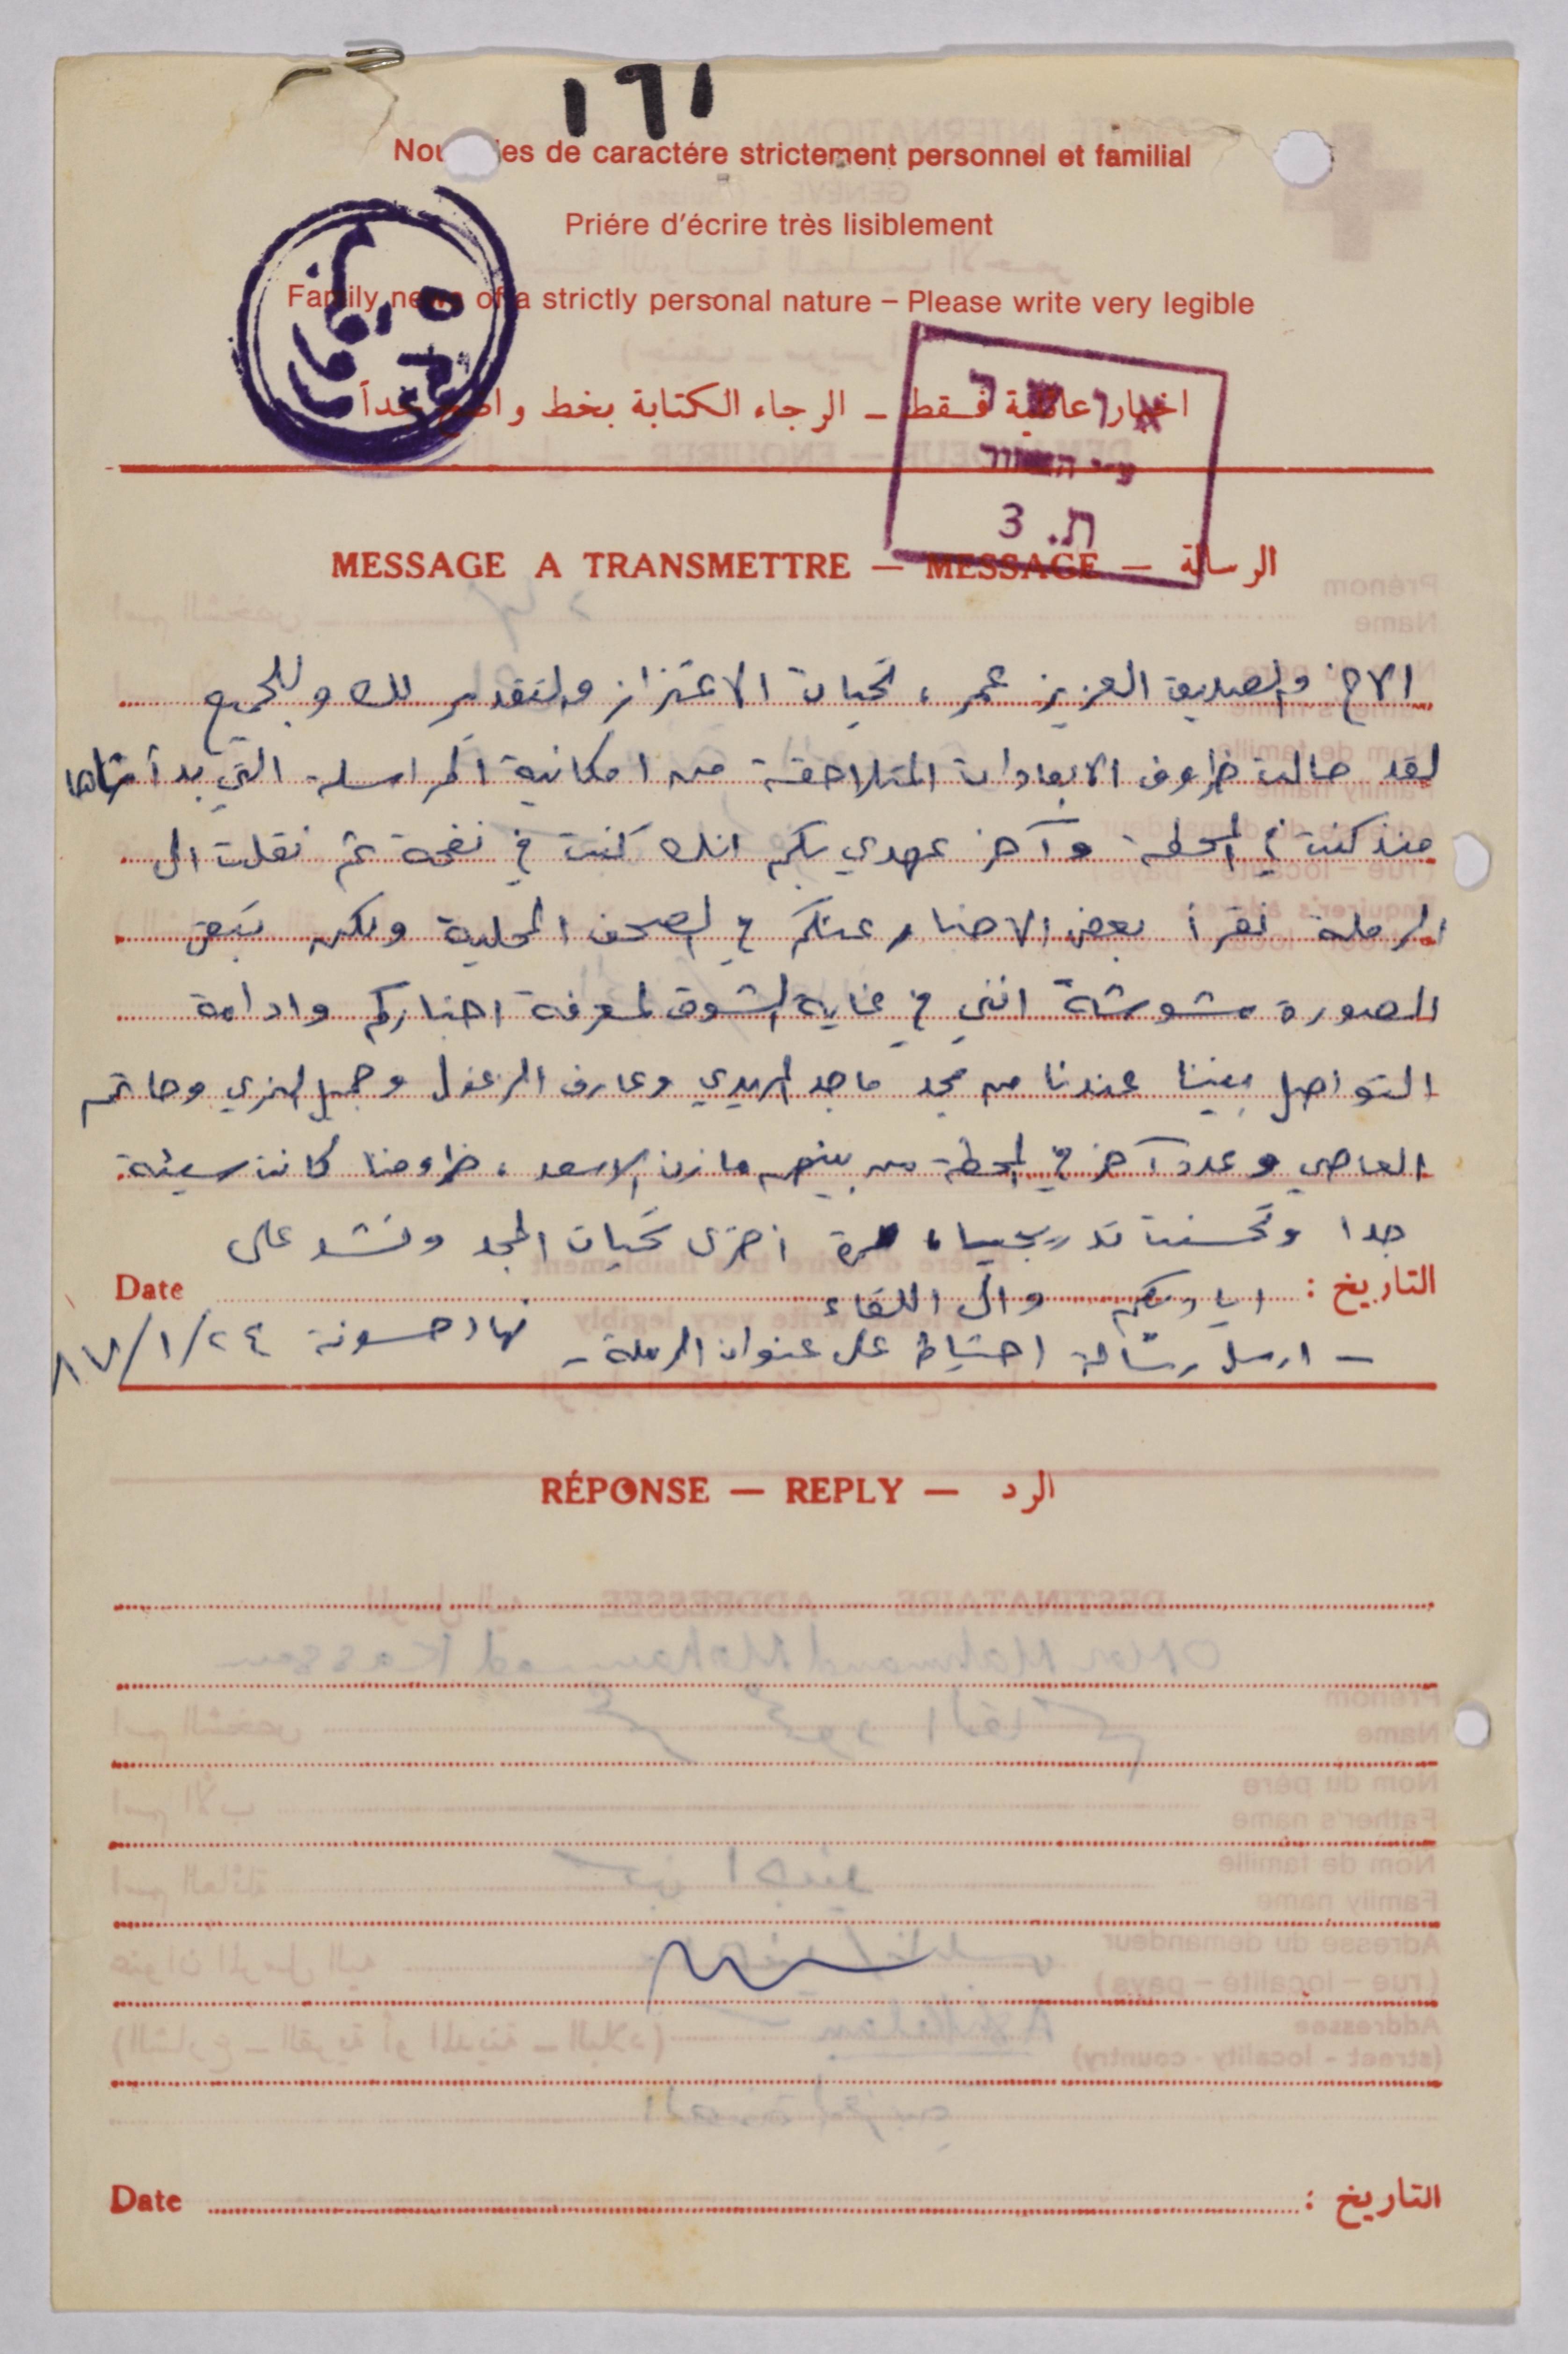 ١٦١
Nouvelles de caractére strictement personnel et familial
Priére d'écrire très lisiblement
Family news of a strictly personal nature – Please write very legible
اخبار عائلية فقط – الرجاء الكتابة بخط واضح جداً
ת. 3
MESSAGE A TRANSMETTRE — MESSAGE — الرسالة
الاخ والصديق العزيز عمر ، تحيات الاعتزاز والتقدير لك وللجميع
لقد حالت ظروف الابعادات المتلاحقة من امكانية المراسلة التي بدأناها
منذ كنت في المحطة وآخر عهدي بكم انك كنت في نفحة ثم نقلت الى
الرملة نقرأ بعض الاخبار عنكم في الصحف المحلية ولكن تبقى
الصورة مشوشة انني في غاية الشوق لمعرفة اخباركم وادامة
التواصل بيننا عندنا من مجد ماجد وعارف الزغول وجميل وحاتم
العاصي وعدد آخر في المحطة من بينهم مازن الاسعد ، ظروفنا كانت سيئة
جدا وتحسنت تدريجيا، مرة اخرى تحيات المجد ونشد على
التاريخ : اياديكم والى اللقاء Date
- ارسل رسالة احتياط على عنوان الرملة - نهاد حسونة ٢٤/١/٨٧
RÉPONSE — REPLY — الرد
Date التاريخ :